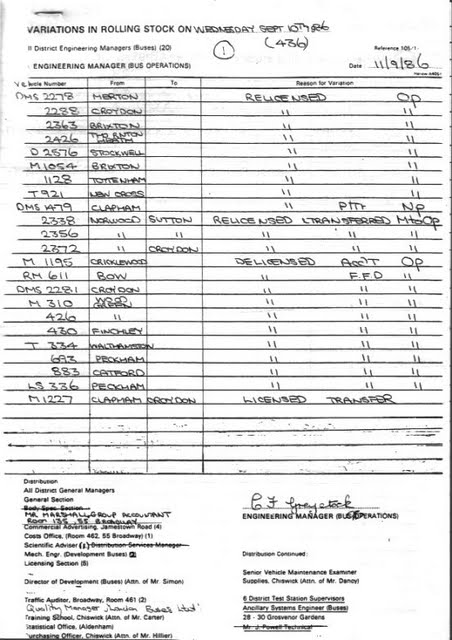 VARIATIONS IN ROLLING STOCK ON WEDNESDAY SEPT 10TH 86
ll District Engineering Managers (Buses) (20) 1 (436) Reference 105/1
ENGINEERING MANAGER (BUS OPERATIONS) Date 11/9/86
Vehicle Number From To Reason for Variation
DMS 2278 MERTON RELICENSED Op
2288 CROYDON " "
2363 BRIXTON " "
2426 THORNTON HEATH " "
D 2576 STOCKWELL " "
M 1054 BRIXTON " "
1128 TOTTENHAM " "
T 921 NEW CROSS " "
DMS 1479 CLAPHAM " Pttr Np
2338 NORWOOD SUTTON RELICENSED &TRANSFERRED MtoOp
2356 " " " " "
2372 " CROYDON " " "
M 1195 CRICKLEWOOD DELICENSED Acc'T Op
RM 611 BOW " F.F.D "
DMS 2281 CROYDON " " "
M 310 WOOD GREEN " " "
426 " " " "
430 FINCHLEY " " "
T 334 WALTHAMSTOW " " "
693 PECKHAM " " "
883 CATFORD " " "
LS 336 PECKHAM " " "
M 1227 CLAPHAM CROYDON LICENSED TRANSFER
Distribution
All District General Managers
General Section
Body Spec Section
MR MARSHALL, GROUP ACCOUNTANT
ROOM 135, 55 BROADWAY
Commercial Advertising, Jamestown Road (4)
Costs Office, (Room 462, 55 Broadway) (1)
Scientific Adviser (1) Distribution Services Manager
Mech. Engr. (Development Buses) (2)
Licensing Section (5)
Director of Development (Buses) (Attn. of Mr. Simon)
Traffic Auditor, Broadway, Room 461 (2)
Quality Manager London Buses Ltd
Training School, Chiswick (Attn. of Mr. Carter)
Statistical Office, (Aldenham)
urchasing Officer, Chiswick (Attn. of Mr. Hillier)
C F Greystock
ENGINEERING MANAGER (BUS OPERATIONS)
Distribution Continued:
Senior Vehicle Maintenance Examiner
Supplies, Chiswick (Attn. of Mr. Dancy)
6 District Test Station Supervisors
Ancillary Systems Engineer (Buses)
28 - 30 Grosvenor Gardens
Mr. J. Powell Technical